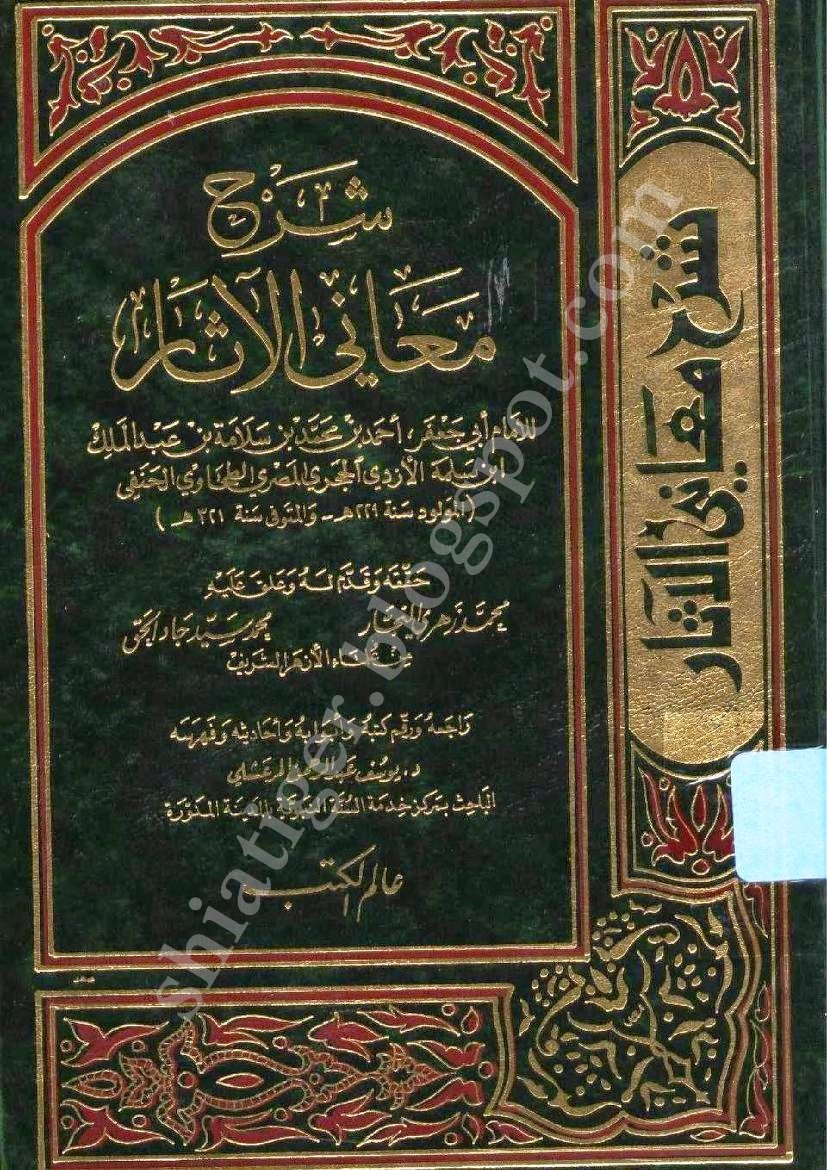 شرح
معاني الآثار
للإمام أبي جعفر، أحمد بن محمد بن سلامة بن عبد الملك
ابن سلمة الأزدي الحجري المصري الطحاوي الحنفي
(المولود سنة ٢٢٩هـ - والمتوفى سنة ٣٢١هـ)
حققه وقدم له وعلق عليه
محمد زهري النجار محمد سيد جاد الحق
من علماء الأزهر الشريف
راجعه ورقم كتبه وأبوابه وأحاديثه وفهرسه
د. يوسف عبد الرحمن المرعشلي
الباحث بمركز خدمة السنة النبوية بالمدينة المنورة
عالم الكتب
شرح معاني الآثار
shiatiger.blogspot.com